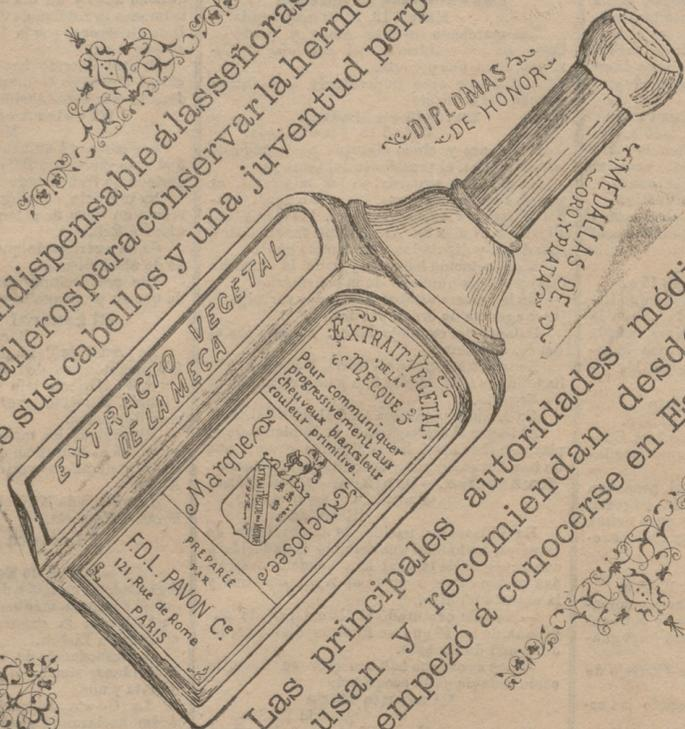 indispensable álasseñoras
allerospara conservar la hermo
e sus cabellos y una juventud perp
DIPLOMAS
DE HONOR
MEDALLAS DE
ORO Y PLATA
EXTRACTO VEGETAL
DE LA MECA
EXTRAIT VEGETAL,
DE LA
MECQUE
Pour communiquer
progressivement aux
cheuveux blancs leur
couleur primitive.
Marque Deposée
EXTRAIT VEGETAL DE LA MECQUE
PREPARÉE
PAR
F.D.L. PAVON Cᵉ
121, Rue de Rome
PARIS
Las principales autoridades médi
usan y recomiendan desde
empezó á conocerse en Es